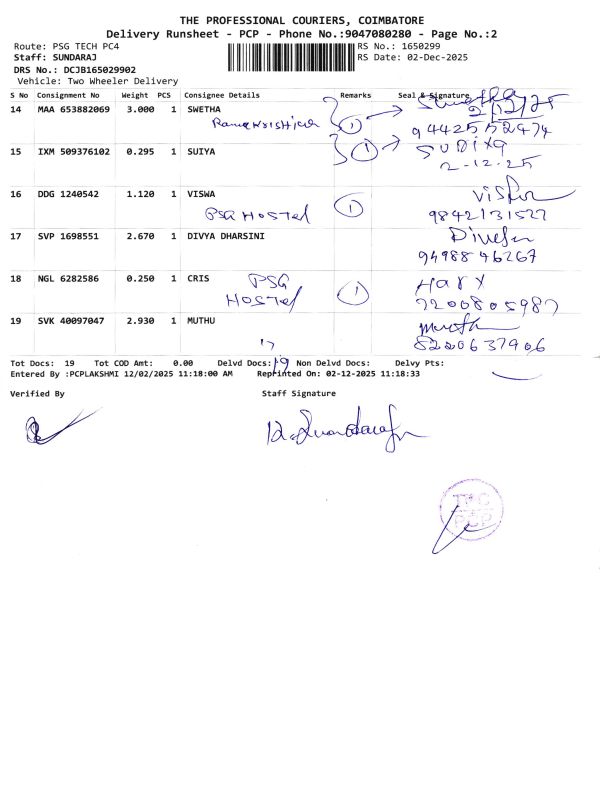 THE PROFESSIONAL COURIERS, COIMBATORE
Delivery Runsheet - PCP - Phone No.:9047080280 - Page No.:2
Route: PSG TECH PC4 RS No.: 1650299
Staff: SUNDARAJ RS Date: 02-Dec-2025
DRS No.: DCJB165029902
Vehicle: Two Wheeler Delivery
S No Consignment No Weight PCS Consignee Details Remarks Seal & Signature
14 MAA 653882069 3.000 1 SWETHA 2/12/25
1 9442552474
15 IXM 509376102 0.295 1 SUIYA 1 SUDIXA
2-12-25
16 DDG 1240542 1.120 1 VISWA
PSG HOSTEL 1 9842131527
17 SVP 1698551 2.670 1 DIVYA DHARSINI
9498846267
18 NGL 6282586 0.250 1 CRIS PSG HARY
HOSTEL 1 7200805987
19 SVK 40097047 2.930 1 MUTHU
8220637906
Tot Docs: 19 Tot COD Amt: 0.00 Delvd Docs: 19 Non Delvd Docs: Delvy Pts:
Entered By :PCPLAKSHMI 12/02/2025 11:18:00 AM Reprinted On: 02-12-2025 11:18:33
Verified By Staff Signature
TPC
PCP